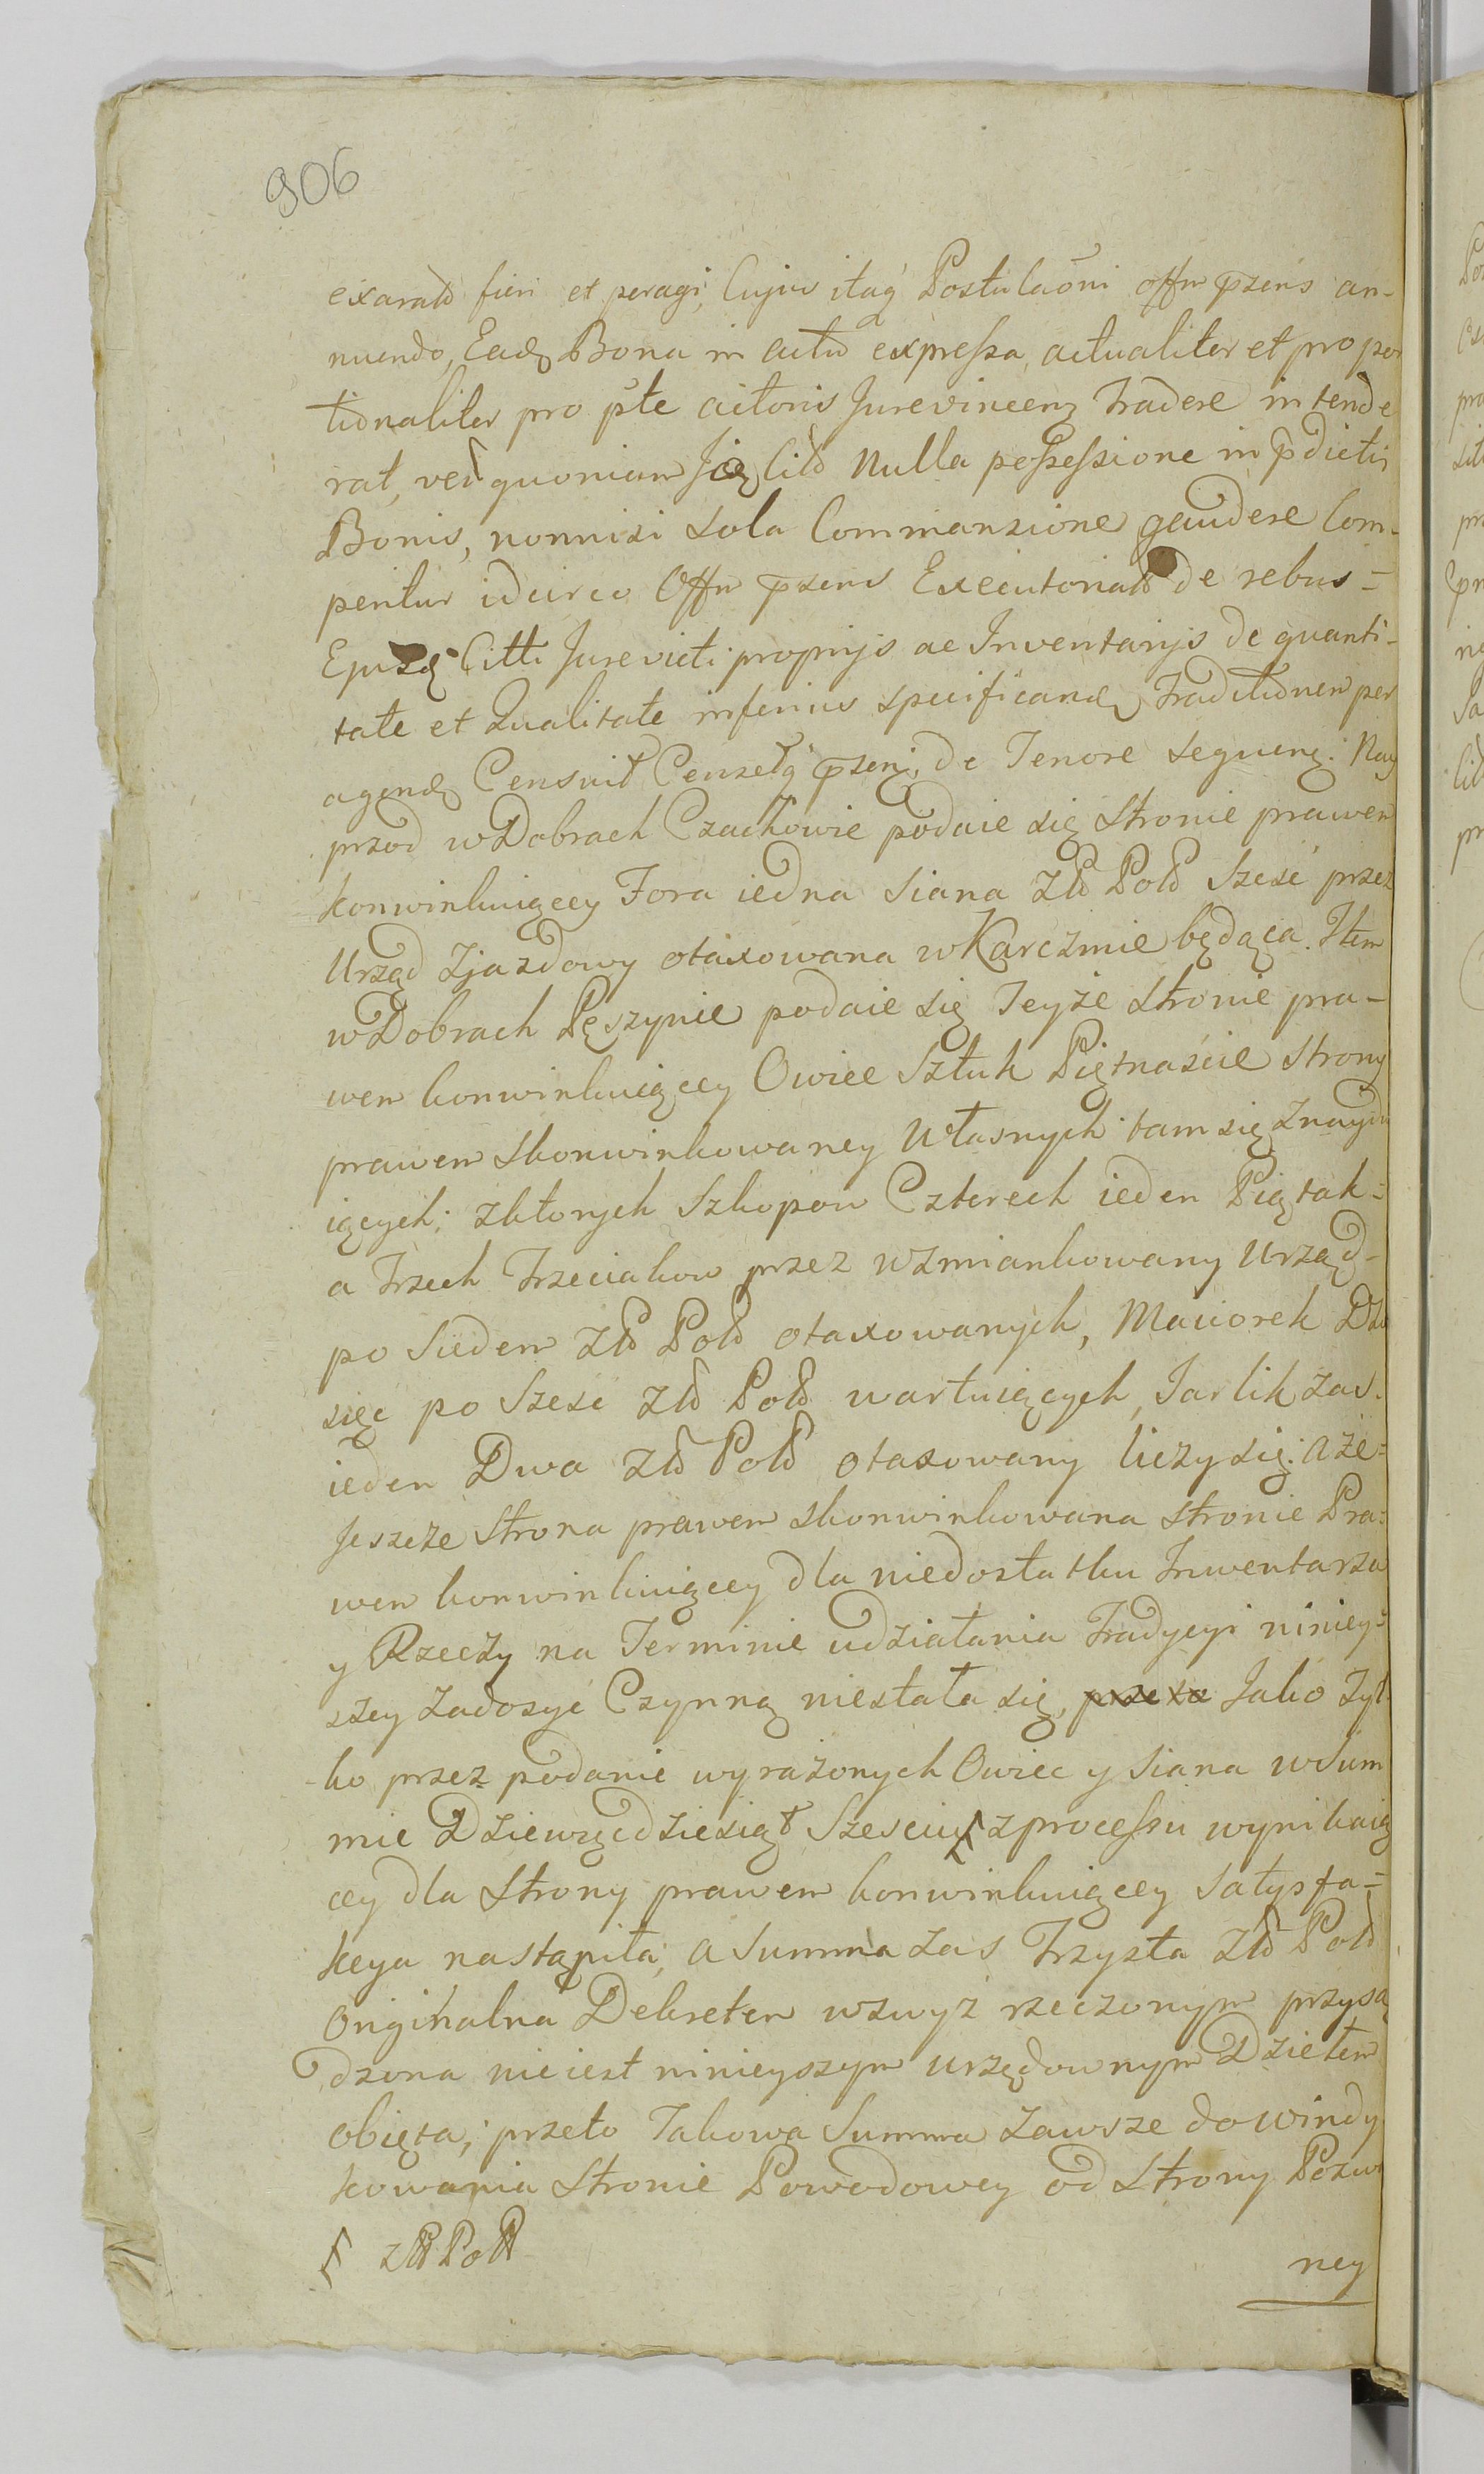 906
exarato fieri et peragi, Cujus itaq Postulaoni offm pszens an-
nuendo, Eadq Bona in actu expressa, actualiter et propor
tionaliter pro pte actoris Jurevincenq Tradere intende
rat, veŕ quoniam Citd Nulla possessione in pdictis
Bonis, nonnisi sola Commansione gaudere Com-
peritur idcirco Offm pszens Executoriald de rebus=
Ejuzd Citti Jurevicti proprijs ac Inventarijs de quanti-
tate et Qualitate inferius specificandq Traditionem per
agendq Censuit Censetq pszenq, de Tenore sequenq: Nay
przod w Dobrach Czachowie podaie się Stronie prawem
konwinkuiącey Fora iedna Siana Złł Poll Szesć przez
Urząd Zjazdowy otaxowana w Karczmie będąca. Item
w Dobrach Pęszynie podaie się Teyże Stronie pra-
wem konwinkuiącey Owiec Sztuk Piętnaście Strony
prawem skonwinkowaney Własnych tam się Znayd
iących; z których Szkopow Czterech ieden Piątak=
a Trzech Trzeciakow przez wzmiankowany Urząd-
po Siedem Złł Poll otaxowanych, Maciorek Dzie
sięć po Szesć Złł Poll wartuiących, Jarlik zas.
ieden Dwa Złł Poll otaxowany liczy się: a że=
Jeszcze Strona prawem skonwinkowana Stronie Pra=
wem konwinkuiącey dla niedostatku Inwentarza
y Rzeczy na Terminie udziałania Tradycyi niniey=
szey Zadosyć Czynną niestała się, przeto Jako Tyl
ko przez podanie wyrażonych Owiec y Siana w Sum
mie Dziewięcdziesiąt Szesciuſ z processu wynikaią
cey dla Strony prawem konwinkuiącey Satysfa=
kcya nastąpiła, a Summa zas Trzysta Złł Poll
Originalna Dekretem wzwyż rzeczonym przysą
dzona nie iest ninieyszym urzędownym Dziełem
obięta; przeto Takowa Summa Zawsze do windy
kowania Stronie Powodowey od Strony Pozwa
ſ złł Poll
ney